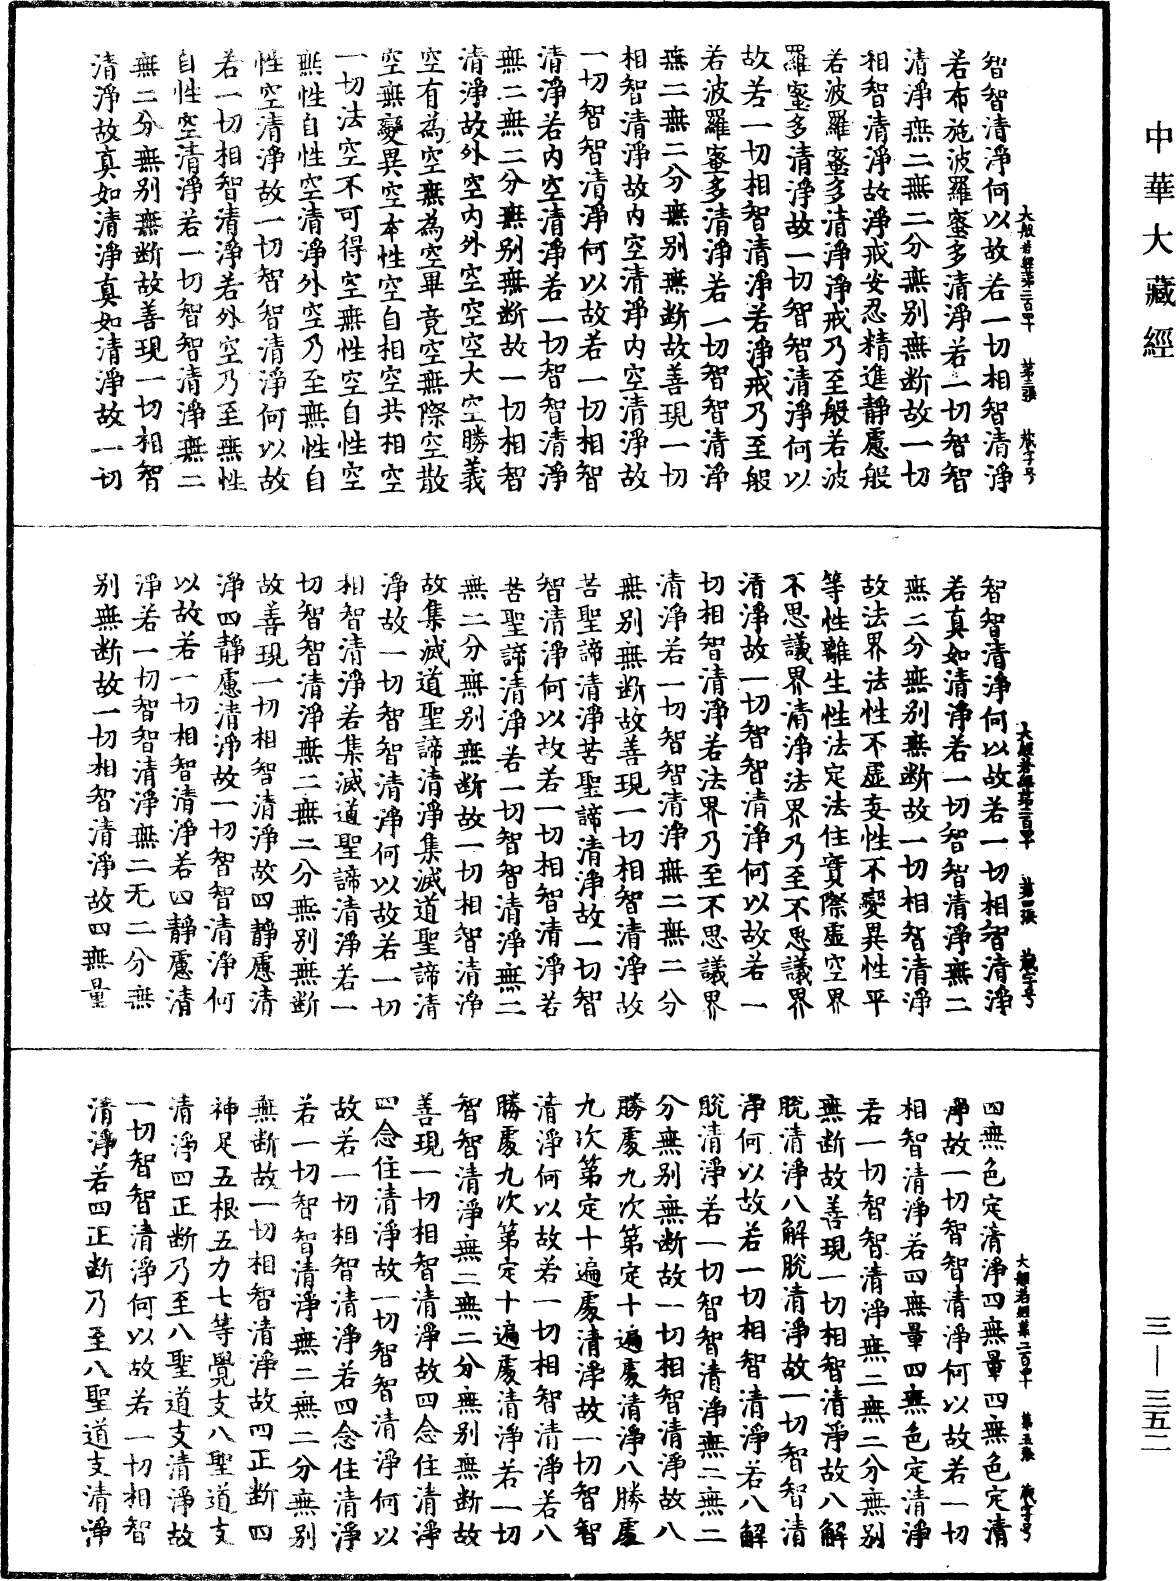 中華大藏經
大般若經第二百四十 第三張
智智清淨何以故若一切相智清淨
若布施波羅蜜多清淨若一切智智
清淨無二無二分無別無斷故一切
相智清淨故淨戒安忍精進靜慮般
若波羅蜜多清淨淨戒乃至般若波
羅蜜多清淨故一切智智清淨何以
故若一切相智清淨若淨戒乃至般
若波羅蜜多清淨若一切智智清淨
無二無二分無別無斷故善現一切
相智清淨故內空清淨內空清淨故
一切智智清淨何以故若一切相智
清淨若內空清淨若一切智智清淨
無二無二分無別無斷故一切相智
清淨故外空內外空空空大空勝義
空有為空無為空畢竟空無際空散
空無變異空本性空自相空共相空
一切法空不可得空無性空自性空
無性自性空清淨外空乃至無性自
性空清淨故一切智智清淨何以故
若一切相智清淨若外空乃至無性
自性空清淨若一切智智清淨無二
無二分無別無斷故善現一切相智
清淨故真如清淨真如清淨故一切
大般若經第二百四十 第四張
智智清淨何以故若一切相智清淨
若真如清淨若一切智智清淨無二
無二分無別無斷故一切相智清淨
故法界法性不虛妄性不變異性平
等性離生性法定法住實際虛空界
不思議界清淨法界乃至不思議界
清淨故一切智智清淨何以故若一
切相智清淨若法界乃至不思議界
清淨若一切智智清淨無二無二分
無別無斷故善現一切相智清淨故
苦聖諦清淨苦聖諦清淨故一切智
智清淨何以故若一切相智清淨若
苦聖諦清淨若一切智智清淨無二
無二分無別無斷故一切相智清淨
故集滅道聖諦清淨集滅道聖諦清
淨故一切智智清淨何以故若一切
相智清淨若集滅道聖諦清淨若一
切智智清淨無二無二分無別無斷
故善現一切相智清淨故四靜慮清
淨四靜慮清淨故一切智智清淨何
以故若一切相智清淨若四靜慮清
淨若一切智智清淨無二无二分無
別無斷故一切相智清淨故四無量
大般若經第二百四十 第五張
四無色定清淨四無量四無色定清
淨故一切智智清淨何以故若一切
相智清淨若四無量四無色定清淨
若一切智智清淨無二無二分無別
無斷故善現一切相智清淨故八解
脫清淨八解脫清淨故一切智智清
淨何以故若一切相智清淨若八解
脫清淨若一切智智清淨無二無二
分無別無斷故一切相智清淨故八
勝處九次第定十遍處清淨八勝處
九次第定十遍處清淨故一切智智
清淨何以故若一切相智清淨若八
勝處九次第定十遍處清淨若一切
智智清淨無二無二分無別無斷故
善現一切相智清淨故四念住清淨
四念住清淨故一切智智清淨何以
故若一切相智清淨若四念住清淨
若一切智智清淨無二無二分無別
無斷故一切相智清淨故四正斷四
神足五根五力七等覺支八聖道支
清淨四正斷乃至八聖道支清淨故
一切智智清淨何以故若一切相智
清淨若四正斷乃至八聖道支清淨
三—三五二